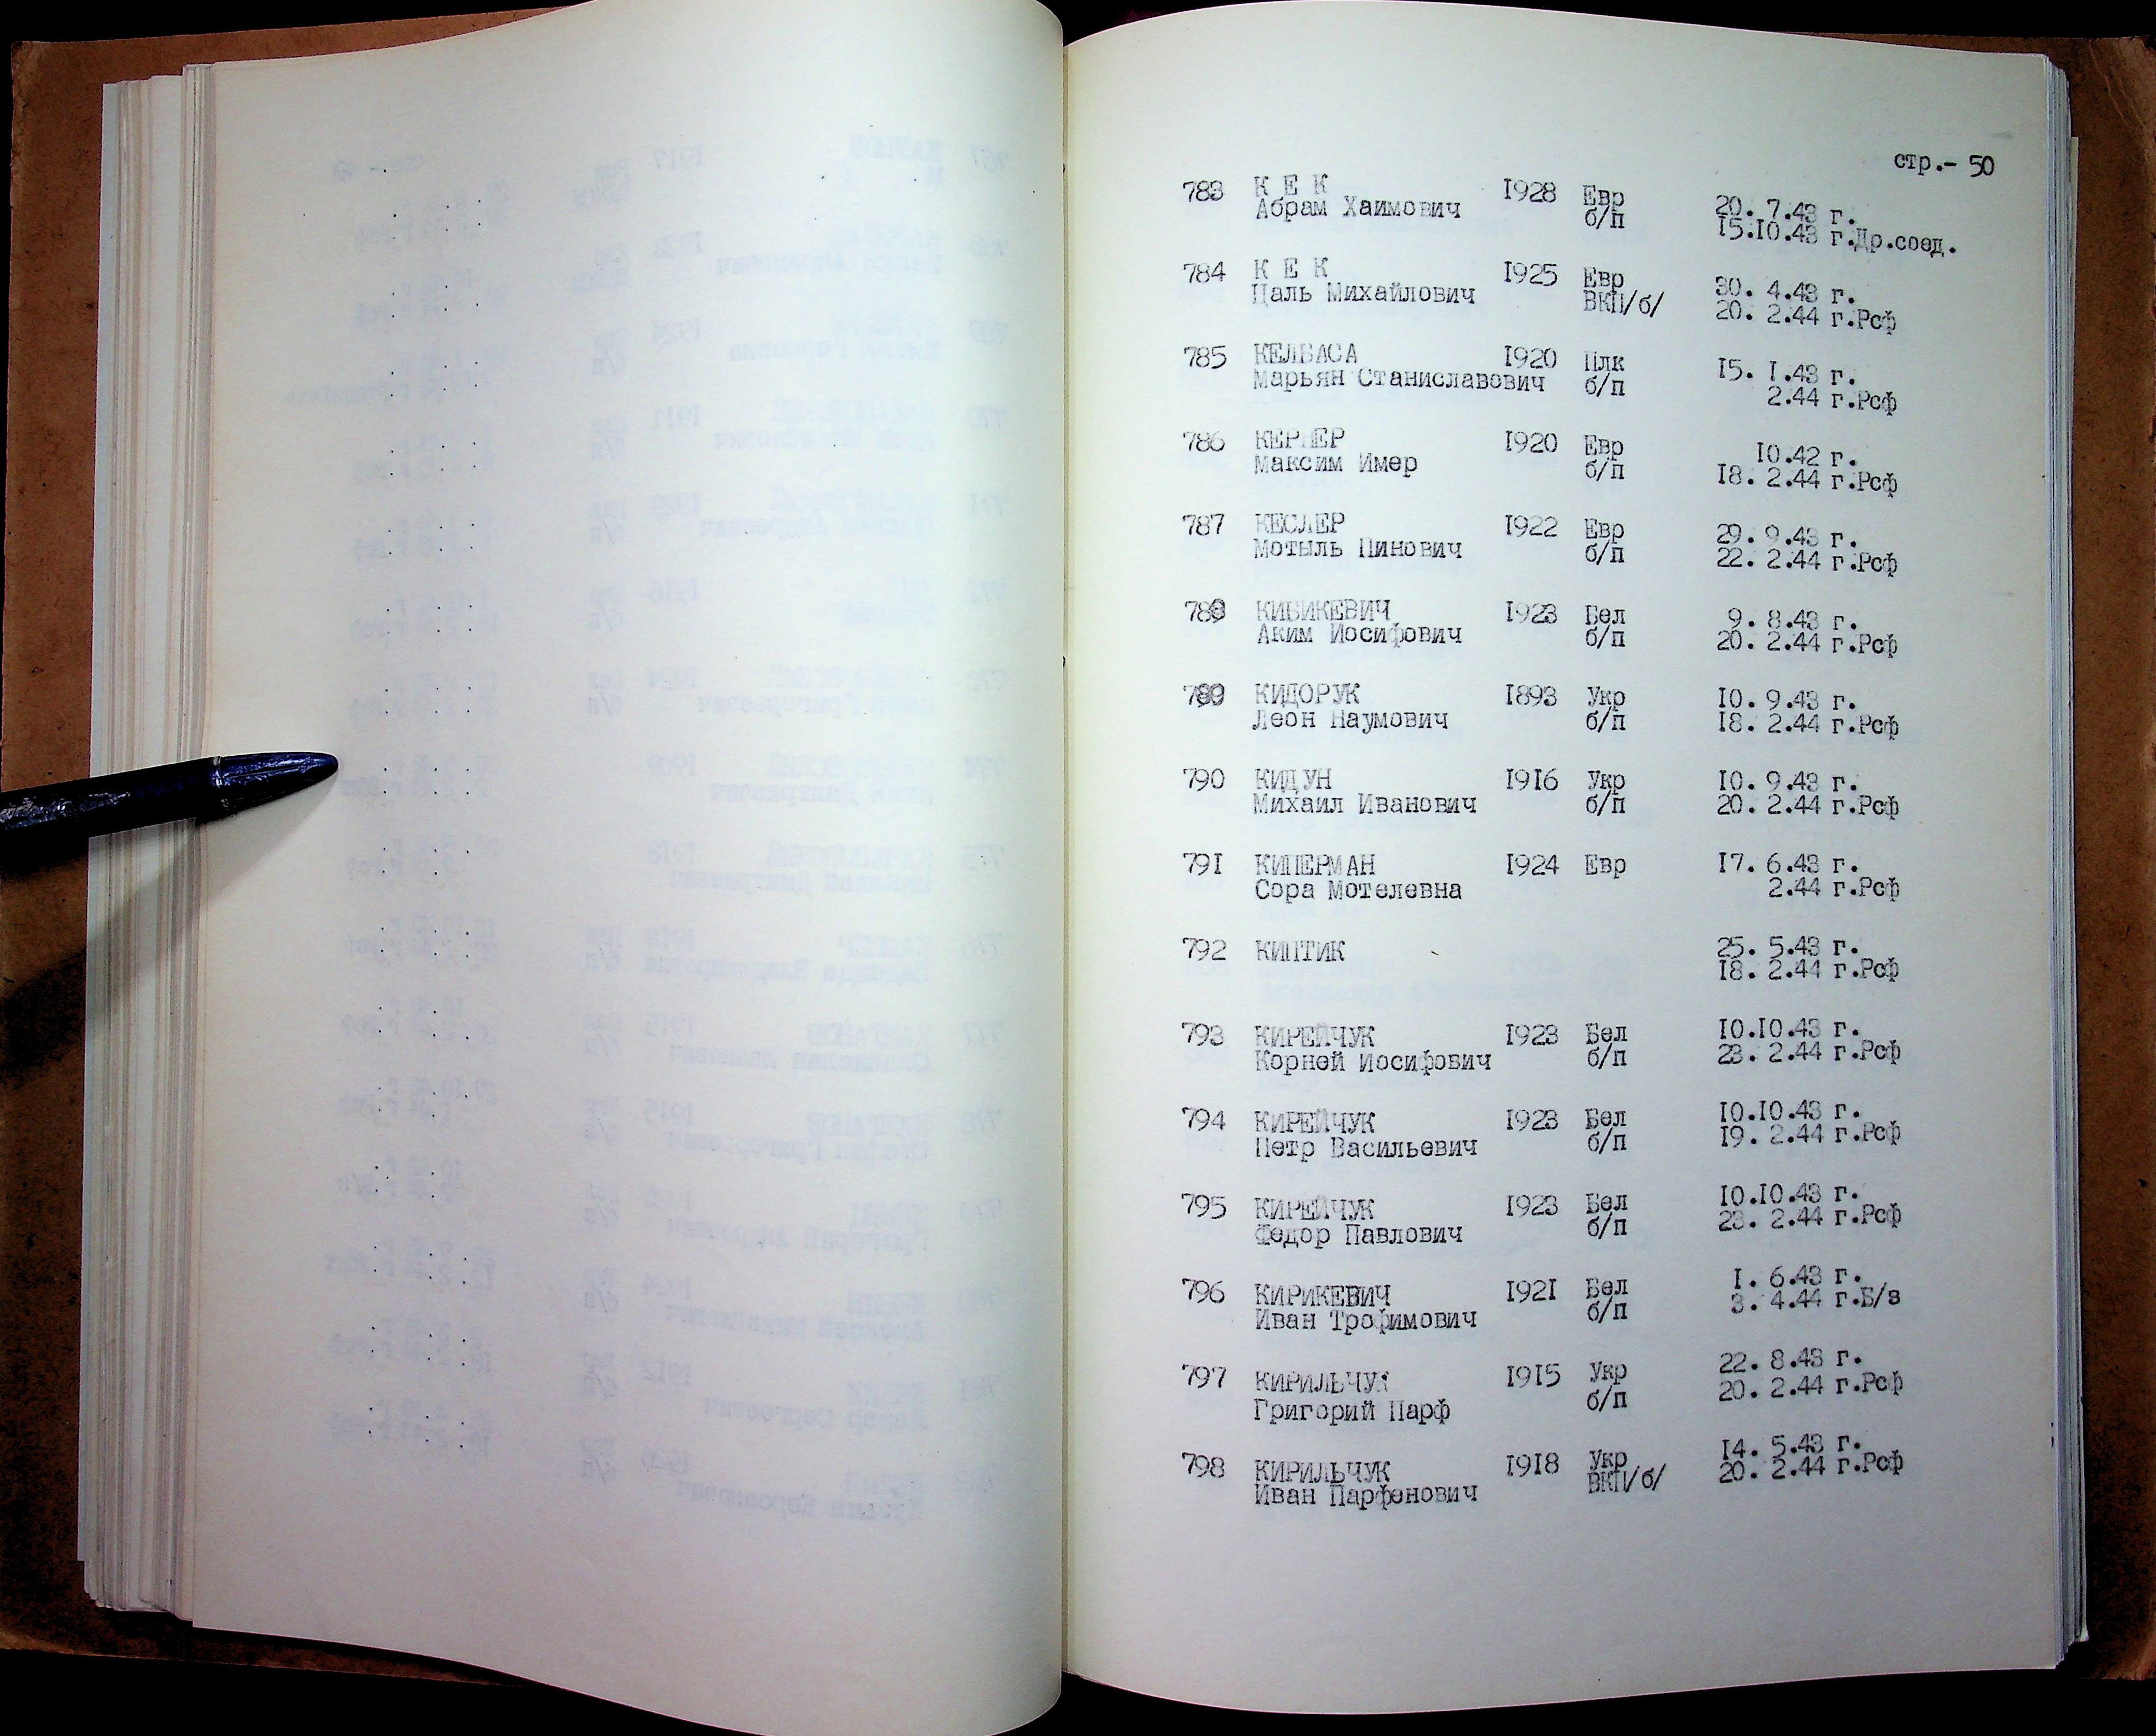 стр.- 50
783 К Е К 1928 Евр 20. 7.43 г.
Абрам Хаимович б/п 15.10.43 г.Др.соед.
784 К Е К 1925 Евр 30. 4.43 г.
Цаль Михайлович ВКП/б/ 20. 2.44 г.Рсф
785 КЕЛБАСА 1920 Плк 15. 1.43 г.
Марьян Станиславович б/п 2.44 г.Рсф
786 КЕРНЕР 1920 Евр 10.42 г.
Максим Имер б/п 18. 2.44 г.Рсф
787 КЕСЛЕР 1922 Евр 29. 9.43 г.
Мотыль Пинович б/п 22. 2.44 г.Рсф
788 КИБИКЕВИЧ 1923 Бел 9. 8.43 г.
Аким Иосифович б/п 20. 2.44 г.Рсф
789 КИДОРУК 1893 Укр 10. 9.43 г.
Леон Наумович б/п 18. 2.44 г.Рсф
790 КИДУН 1916 Укр 10. 9.43 г.
Михаил Иванович б/п 20. 2.44 г.Рсф
791 КИПЕРМАН 1924 Евр 17. 6.43 г.
Сора Мотелевна 2.44 г.Рсф
792 КИПТИК 25. 5.43 г.
18. 2.44 г.Рсф
793 КИРЕЙЧУК 1923 Бел 10.10.43 г.
Корней Иосифович б/п 23. 2.44 г.Рсф
794 КИРЕЙЧУК 1923 Бел 10.10.43 г.
Петр Васильевич б/п 19. 2.44 г.Рсф
795 КИРЕЙЧУК 1923 Бел 10.10.43 г.
Федор Павлович б/п 23. 2.44 г.Рсф
796 КИРИКЕВИЧ 1921 Бел 1. 6.43 г.
Иван Трофимович б/п 3. 4.44 г.Б/з
797 КИРИЛЬЧУК 1915 Укр 22. 8.43 г.
Григорий Парф б/п 20. 2.44 г.Рсф
798 КИРИЛЬЧУК 1918 Укр 14. 5.43 г.
Иван Парфенович ВКП/б/ 20. 2.44 г.Рсф